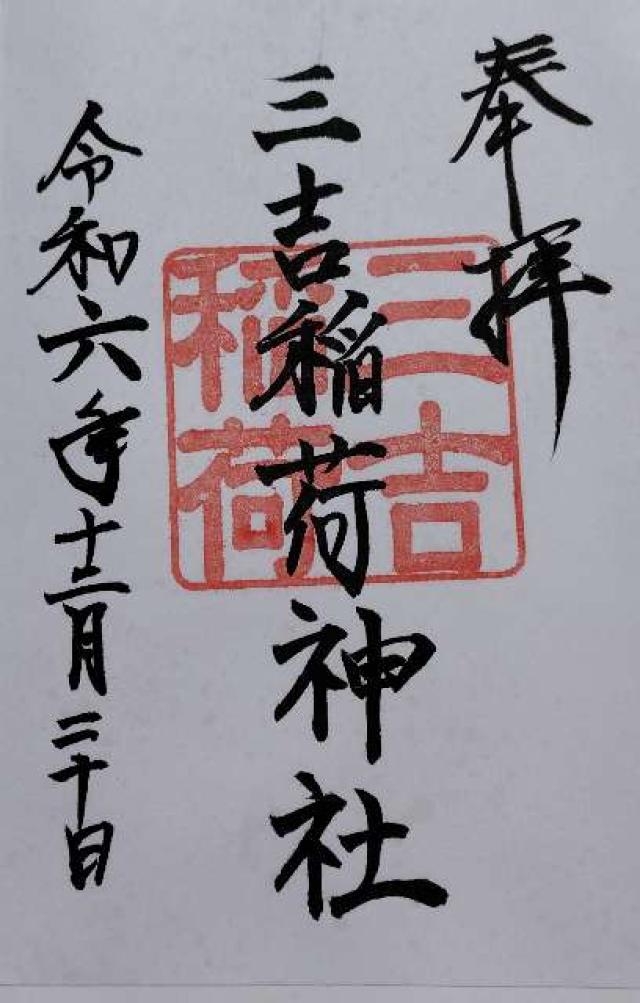 奉拝
三吉稲荷神社
三吉
稲荷
令和六年十二月二十日